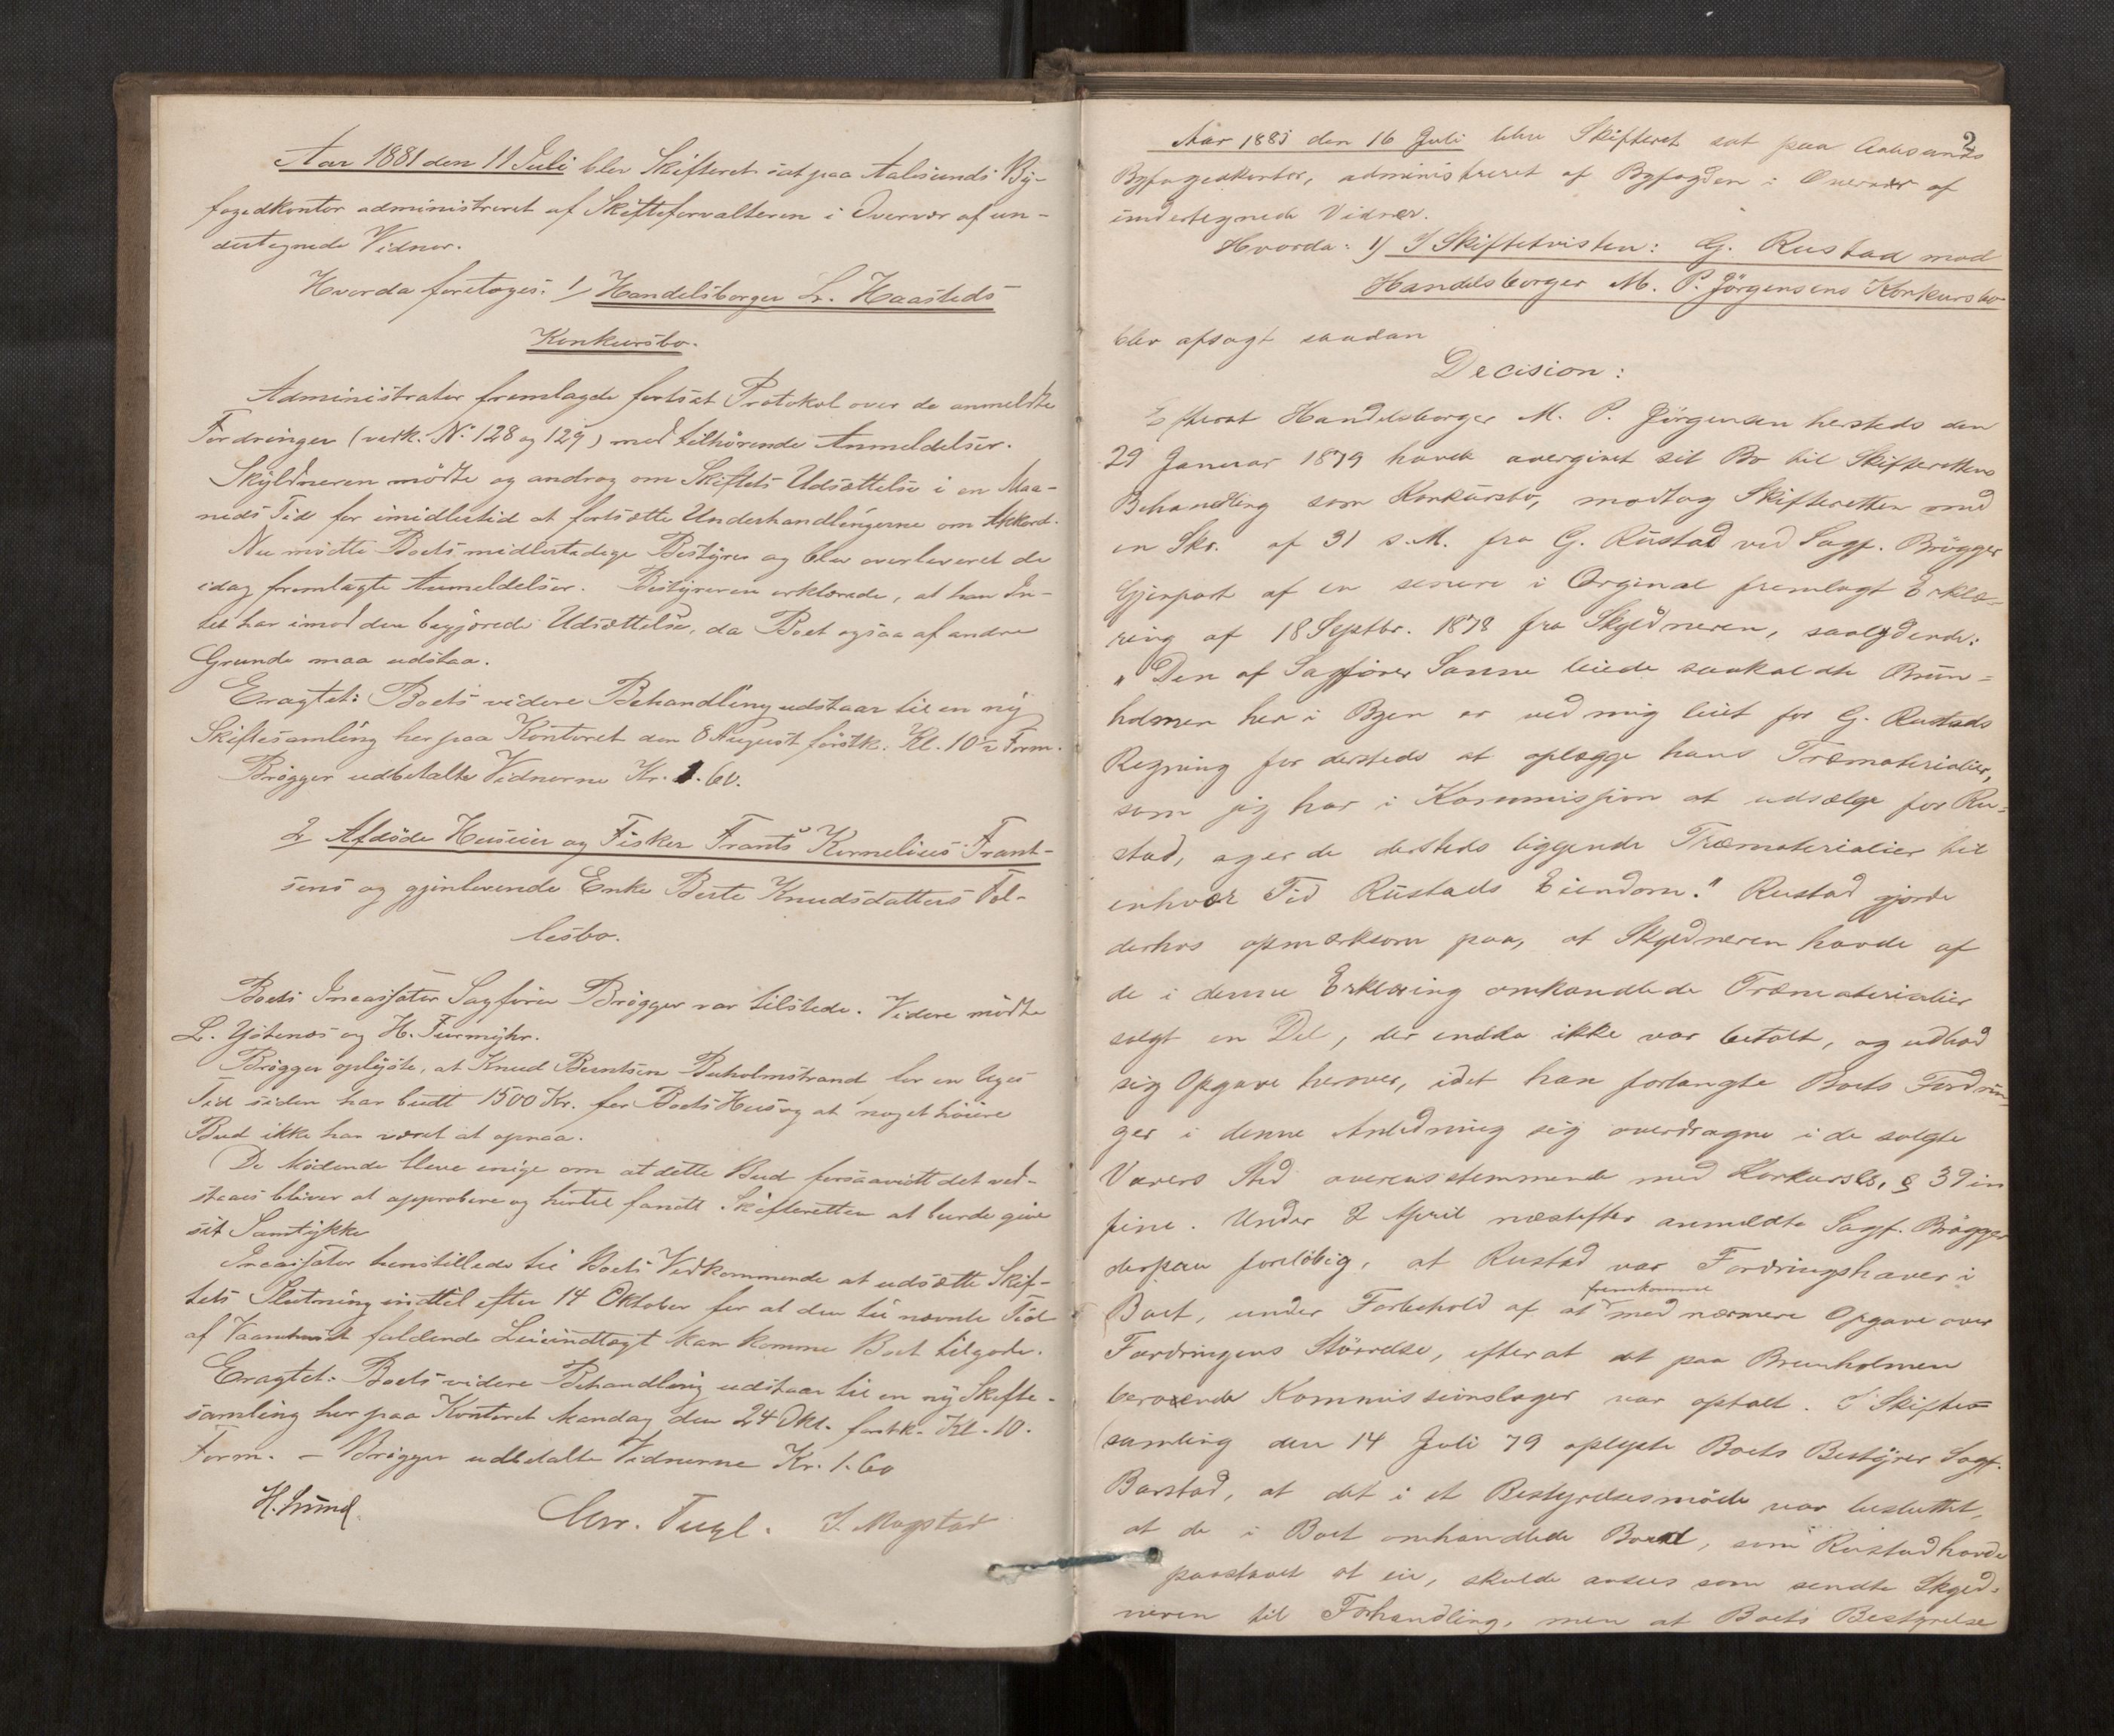 Aar 1881 den 11 Juli blev Skifteret sat paa Aalesunds By-
fogedkontor administreret af Skifteforvalteren i Overvær af un-
dertegnede Vidner.
Hvorda foretoges: 1/ Handelsborger L. Haasteds
Konkursbo.
Administrator fremlagde fortsat Protokol over de anmeldte
Fordringer (verk. No 128 og 129) med tilhørende Anmeldelser.
Skyldneren mødte og androg om Skiftets Udsættelse i en Maa-
neds Tid for imidlertid at fortsætte Underhandlingerne om Akkord.
Nu mødte Boets midlertidige Bestyrer og blev overleveret de
idag fremlagte Anmeldelser. Bestyreren erklærede, at han In-
tet har imod den begjærede Udsættelse, da Boet ogsaa af andre
Grunde maa udstaa.
Eragtet: Boets videre Behandling udstaar til en ny
Skiftesamling her paa Kontoret den 8 August førstk. Kl. 10½ Form.
Brøgger udbetalte Vidnerne Kr. 1.60.
2 Afdøde Huseier og Fisker Frants Kornelius Frant-
sens og gjenlevende Enke Berte Knudsdatters Fæl-
lesbo.
Boets Incassator Sagfører Brøgger var tilstede. Videre mødte
L. Ystenæs og H. Furmyhr.
Brøgger oplyste, at Knud Berntsen Buholmstrand for en Uges
Tid siden har budt 1500 Kr. for Boets Hus og at noget høiere
Bud ikke har været at opnaa.
De Mødende bleve enige om at dette Bud forsaavidt det ved-
staaes bliver at approbere og hertil fandt Skifteretten at burde give
sit Samtykke
Incassator henstillede til Boets Vedkommende at udsætte Skif-
tets Slutning indtil efter 14 Oktober for at den til nævnte Tid
af Vaanhuset faldende Leieindtægt kan komme Boet tilgode.
Eragtet: Boets videre Behandling udstaar til en ny Skifte-
samling her paa Kontoret Mandag den 24 Okt. førstk. Kl. 10.
Form. - Brøgger udbetalte Vidnerne Kr. 1.60
H. Lund. Chr. J. Magstad
2
Aar 1881 den 16 Juli blev Skifteret sat paa Aalesunds
Byfogedkontor, administreret af Byfogden i Overvær af
undertegnede Vidner.
Hvorda: 1) I Skiftetvisten: G. Rustad mod
Handelsborger M. P. Jörgensens Konkursbo
blev afsagt saadan
Decision:
Efterat Handelsborger M. P. Jörgensen hersteds den
29 Januar 1879 havde overgivet sit Bo til Skifterettens
Behandling som Konkursbo, modtog Skifteretten med
en Skr. af 31 s. M. fra G. Rustad ved Sagf. Brögger
Gjenpart af en senere i Orginal fremlagt Erklæ-
ring af 18 Septbr. 1878 fra Skyldneren, saalydende:
"Den af Sagförer Sanne leiede saakaldte Brun-
holmen her i Byen er ved mig leiet for G. Rustads
Regning for dersteds at oplægge hans Træmaterialier,
som jeg har i Kommission at udsælge for Ru-
stad, og er de dersteds liggende Træmaterialier til
enhver Tid Rustads Eiendom." Rustad gjorde
derhos opmærksom paa, at Skyldneren havde af
de i denne Erklæring omhandlede Træmaterialier
solgt en Del, der endda ikke var betalt, og udbad
sig Opgave herover, idet han forlangte Boets Fordrin-
ger i denne Anledning sig overdragne i de solgte
Varers Sted overensstemmende med Konkursls. § 39 in
fine. Under 2 April næstefter anmeldte Sagf. Brögger
derpaa foreløbig, at Rustad var Fordringshaver i
Boet, under Forbehold af at fremkomme med nærmere Opgave over
Fordringens Störrelse, efterat det paa Brunholmen
beroende Kommissionslager var optalt. I Skifte-
samling den 14 Juli 79 oplyste Boets Bestyrer Sagf.
Barstad, at det i et Bestyrelsesmöde var besluttet,
at de i Boet omhandlede Bord, som Rustad havde
paastaaet at eie, skulde ansees som sendte Skyld-
neren til Forhandling, men at Boets Bestyrelse